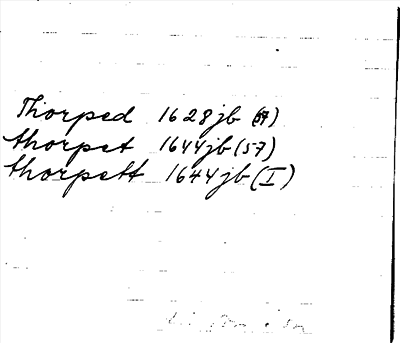 Thorped 1628 jb
thorpet 1644 jb (57)
thorpett 1644 jb (I)